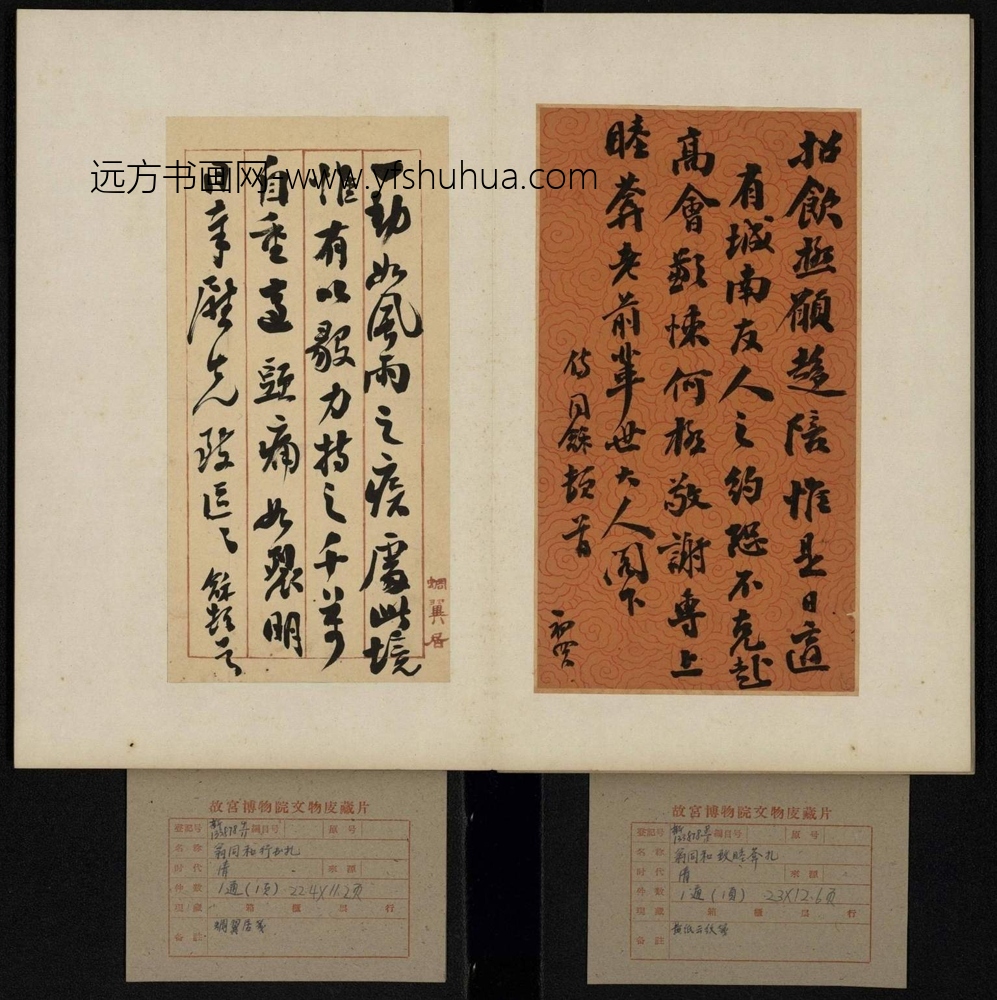 招飲極願趨陪惟是日適
有城南友人之約恐不克赴
高會歉悚何極敬謝專上
睦葊老前輩世大人閣下
侍同龢頓首
初四
一動如風雨之疾處此境
惟有以毅力持之千萬
自重重頭痛如裂明
日率歷先致臣之龢頓首
蜩翼居
远方书画网 www.yfshuhua.com
故宮博物院文物庋藏片
登記号 新 153878 編目号 原号
名称 翁同和行书札
时代 清 來源
件数 1通(1页) 22.4X11.2页
現藏 箱 櫃 层 行
备註 蜩翼居笺
故宮博物院文物庋藏片
登記号 新 153878 編目号 原号
名称 翁同和致睦葊札
时代 清 來源
件数 1通(1页) 23X12.6页
現藏 箱 櫃 层 行
备註